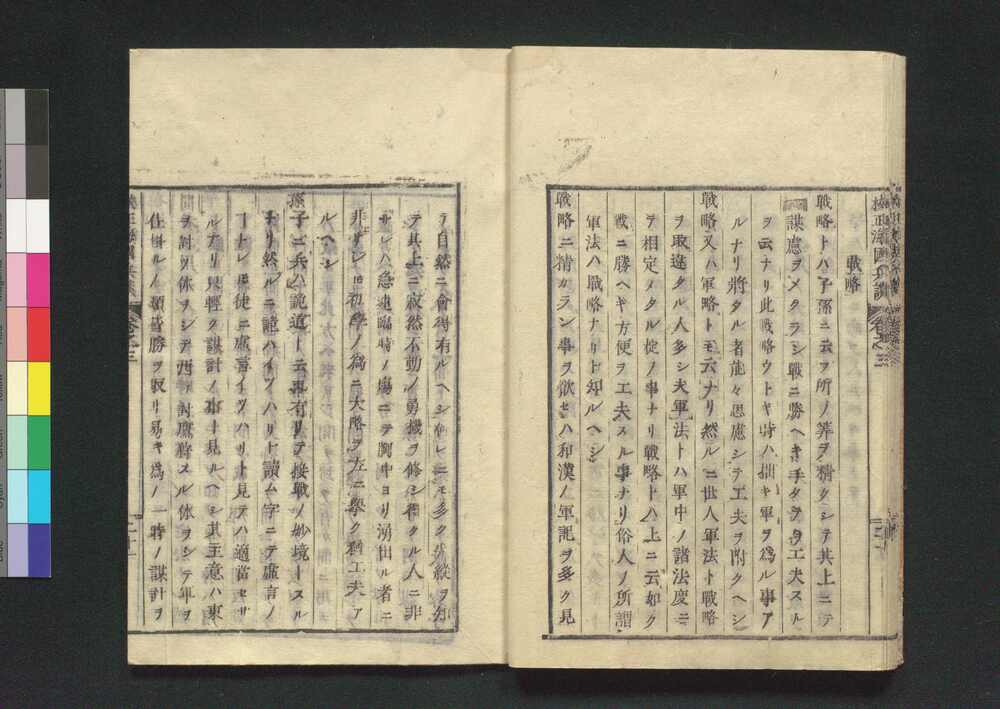 精正海國兵談
卷之三
戰略
戰略トハ子孫ニ云フ所ノ算ヲ精クシテ其上ニテ
謀慮ヲメクラシ戰ニ勝ヘキ手タヲ工夫スル
ヲ云ナリ此戰略ウトキ時ハ拙キ軍ヲ爲ル事ア
ルナリ將タル者能々思慮シテ工夫ヲ閑クヘシ
戰略又ハ軍略トモ云ナリ然ルニ世人軍法ト戰略
ヲ取違タル人多シ夫軍法トハ軍中ノ諸法度ニ
ヲ相定メタル掟ノ事ナリ戰略トハ上ニ云如ク
戰ニ勝ヘキ方便ヲ工夫スル事ナリ俗人ノ所謂
軍法ハ戰略ナリト知ルヘシ
戰略ニ精カラン事ヲ欲セハ和漢ノ軍記ヲ多ク見
テ自然ニ會得有ルヘシ
テ其上ニ寂然不動ノ勇機ヲ修シ得タル人ニ非
サレハ急迫臨時ノ塲ニテ胸中ヨリ湧出ル者ニ
非サレ𪜈初學ノ爲ニ大略ヲ左ニ擧ク猶工夫ア
ルヘシ
孫子ニ兵ハ詭道ト云事有リテ接戰ノ妙境トスル
ナリ然ルニ詭ハイツハリト讀ム字ニテ虛言ノ
ーナレ𪜈徒ニ虛言イツハリト見テハ適當セサ
ルナリ只輕ク謀計ノ事ト見ルヘシ其主意ハ東
ヲ討ツ休ヲシテ西ヲ討虛將スル休ヲシテ年ヲ
仕掛ルノ類皆勝ヲ取リ易キ爲ノ一時ノ謀計ヲ